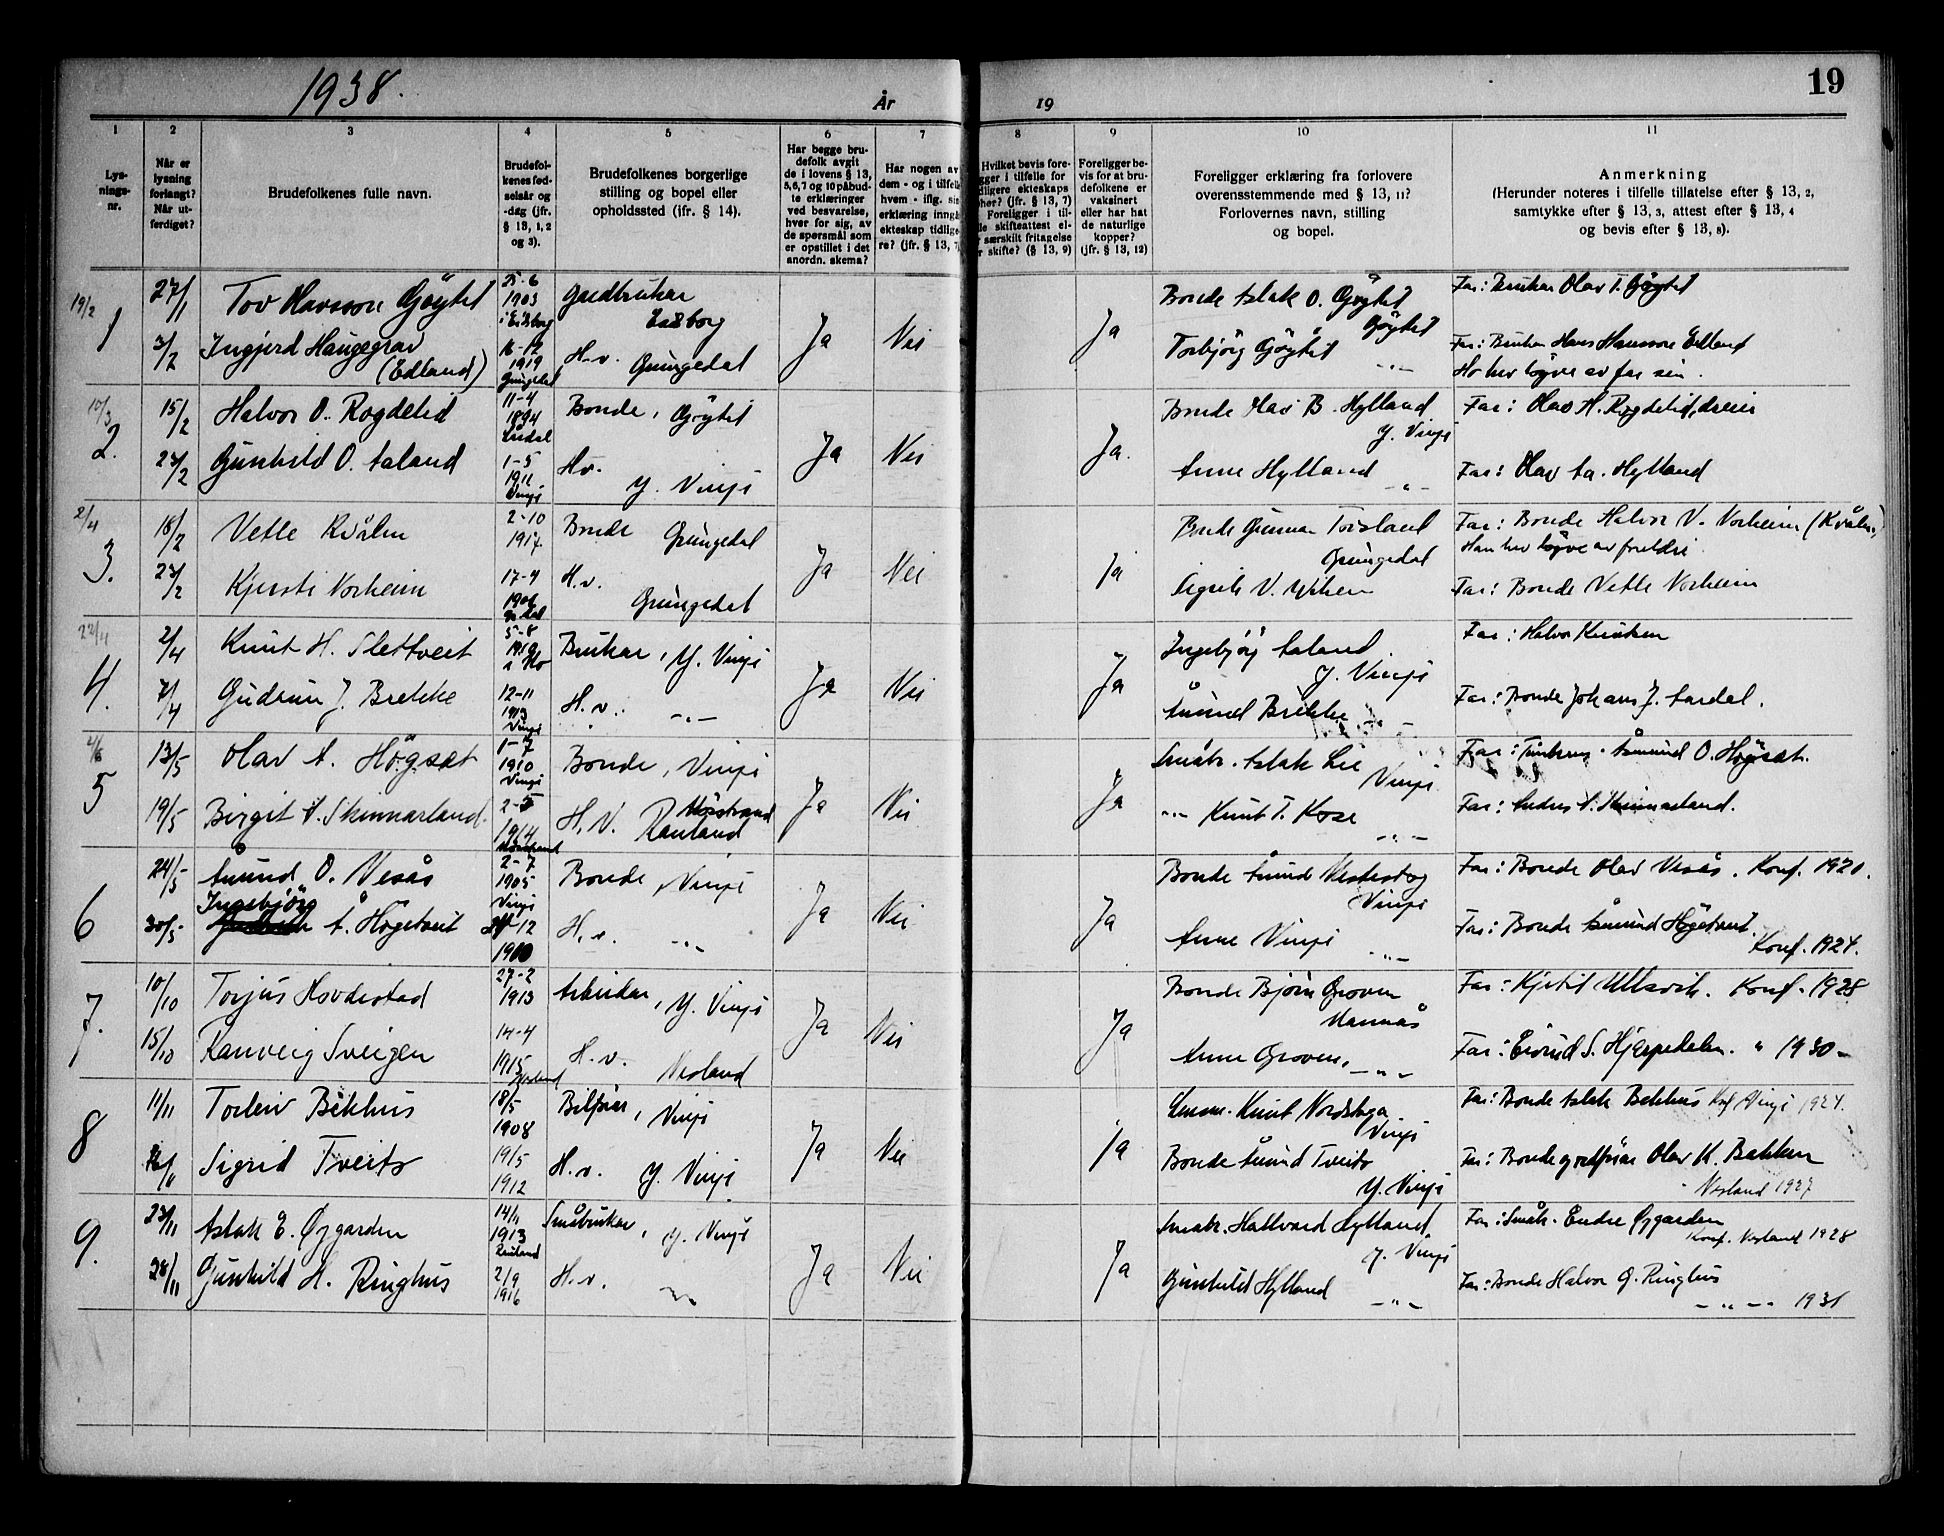 1938.
År
19
19
1
2
3
4
5
6
7
8
9
10
11
Lys-
nings-
nr.
Når er
lysning
forlangt?
Når ut-
ferdiget?
Brudefolkenes fulle navn.
Brudefol-
kenes fød-
selsår og
-dag (jfr.
§ 13, 1, 2
og 3).
Brudefolkenes borgerlige
stilling og bopel eller
opholdssted (jfr. § 14).
Har begge bru-
defolk avgit
de i lovens § 13,
5,6,7 og 10 påbud-
te erklæringer
ved besvarelse,
hver for sig, av
de spørsmål som
er opstillet i det
anordn. skema?
Har nogen av
dem - og i tilfelle
hvem - iflg. sin
erklæring inngå
ekteskap tidlige
re? (jfr. § 13, 7
Hvilket bevis fore-
gger i tilfelle for
dligere ekteskaps
pher? (jfr. § 13, 7)
Foreligger i til-
le skifteattest el-
r særskilt fritagelse
r skifte? (§ 13, 9)
Foreligger be-
vis for at bru-
defolkene er
vaksinert
eller har hat
de naturlige
kopper?
(jfr. § 13, 12)
Foreligger erklæring fra forlovere
overensstemmende med § 13, 11?
Forlovernes navn, stilling
og bopel.
Anmerkning
(Herunder noteres i tilfelle tillatelse efter § 13, 2,
samtykke efter § 13, 3, attest efter § 13, 4
og bevis efter § 13, 8).
19/2
1
27/1
Tov Gøytil
25-6
1903
i Eidsborg
Gardbrukar
Eidsborg
Ja
Nei
Ja
Bonde Aslak O. Gøytil
Gøytil
Far: Brukar Olav T. Gøytil
3/2
Ingjerd Haugegrav
(Edland)
16-12
1919
Grungedal
H.v. Grungedal
Torbjørg Gøytil
-"-
Far: Brukar Hans Hansson Edland
Ho hev løyve av far sin.
10/3
2.
15/2
Halvor O. Rogdelid
11-4
1894
Bonde, Gøytil
Ja
Nei
Ja.
Bonde Olav B. Hylland
Y. Vinje
Far: Olav H. Rogdelid,
23/2
Gunhild O. Aaland
1-5
1911
Vinje
Hv.
Y. Vinje
Anne Hylland
-"-
Far: Olav Aa. Hylland
2/4
3.
18/2
Vetle Kvålen
2-10
1917
Bonde Grungedal
Ja
Nei
Ja
Bonde Gunnar Torsland
Grungedal
Far: Bonde Halvor V. Vorheim (Kvålen)
Han hev løyve av foreldre
23/2
Kjersti Vorheim
17-4
1906
H.v.
Grungedal
Sigrid V.
Far: Bonde Vetle Vorheim
22/4
4.
2/4
Knut H. Slettveit
5-8
i Mo
Brukar, Y. Vinje
Ja
Nei
Ja
Ingebjørg Aaland
Y. Vinje
Far: Halvor Knutsen
7/4
Gudrun J. Brekke
12-11
1913
Vinje
H.v. -"-
Åmund Brekke -"-
Far: Bonde Johans J. Aardal.
5
13/5
Olav A. Høgset
1-7
1910
Vinje
Bonde, Vinje
Ja
Nei
Ja
Småbr. Aslak Lie
Vinje
Far: Åsmund O. Høgset.
19/5
Birgit A. Skinnarland.
2-5
1914
Møsstrand
H.V. Møsstrand
Rauland
-"- Knut T. Kose
-"-
Far: Anders A. Skinnarland.
6
24/5
Åmund O. Vesås
2-7
1905
Vinje
Bonde, Vinje
Ja
Nei
Ja
Bonde Åmund Nestestog
Vinje
Far: Bonde Olav Vesås. Konf. 1920.
30/5
Ingebjörg
Å. Høgetveit
-12
1910
H.v. -"-
Anne Vinje
-"-
Far: Bonde Åsmund Høgetveit.
Konf. 1924.
7.
10/10
Torjus Hovdestad
27-2
1913
Arbeidar, Y. Vinje
Ja
Nei
Ja
Bonde Bjørn Groven
Mannås
Far: Kjetil Ullsvik. Konf. 1928
15/10
Ranveig Sveigen
14-4
1915
Nesland
H.v. Nesland
Anne Groven, -"-
Far: Eivind S. Hjerpedalen. " 1930-
8
11/11
Torleiv Bekhus
18/5
1908
Bilfører, Vinje
Ja
Nei
Ja
Knut Nordstoga.
Vinje
Far: Bonde Aslak Bekhus Kf. Vinje 1924.
Sigrid Tveito
19/5
1912
H.v. Y. Vinje
Bonde Åmund Tveito
Y. Vinje
Far: Bonde Olav K. Bakken
- Nesland 1927
9.
23/11
Aslak E. Øygarden
14/11
1913
Rauland
Småbrukar, Y. Vinje
Ja
Nei
Ja
Småbr. Hallvard Hylland
Y. Vinje
Far: Småb. Endre Øygarden
Konf. Nesland 1928
28/11
Gunhild H. Ringhus
2/9
1916
H.v. -"-
Gunhild Hylland -"-
Far: Bonde Halvor G. Ringhus
-"-"- 1931